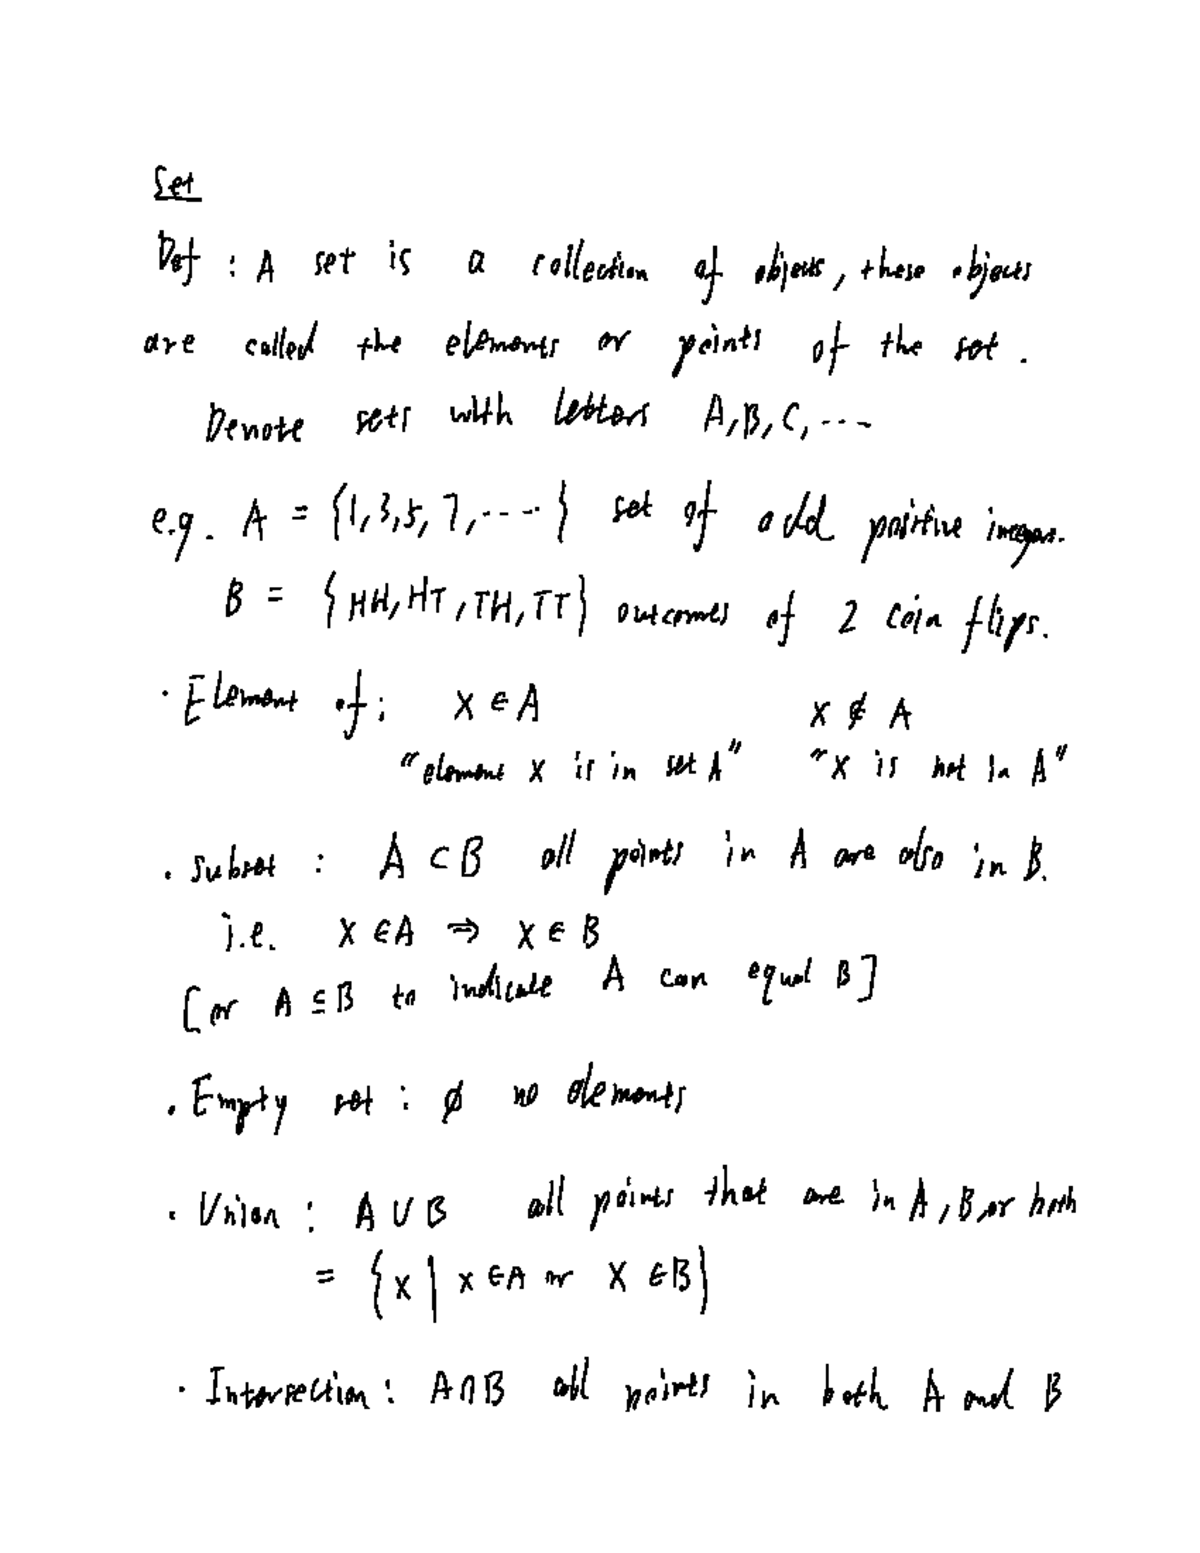 Set
Def : A set is a collection of objects, these objects
are called the elements or points of the set .
Denote sets with letters A, B, C, ...
e.g. A = {1, 3, 5, 7, ....} set of odd positive integers.
B = {HH, HT, TH, TT} outcomes of 2 coin flips.
· Element of : x ∈ A x ∉ A
"element x is in set A" "x is not in A"
· subset : A ⊂ B all points in A are also in B.
i.e. x ∈ A ⇒ x ∈ B
[or A ⊆ B to indicate A can equal B]
· Empty set : ø no elements
· Union : A ∪ B all points that are in A, B, or both
= {x | x ∈ A or x ∈ B}
· Intersection : A ∩ B all points in both A and B